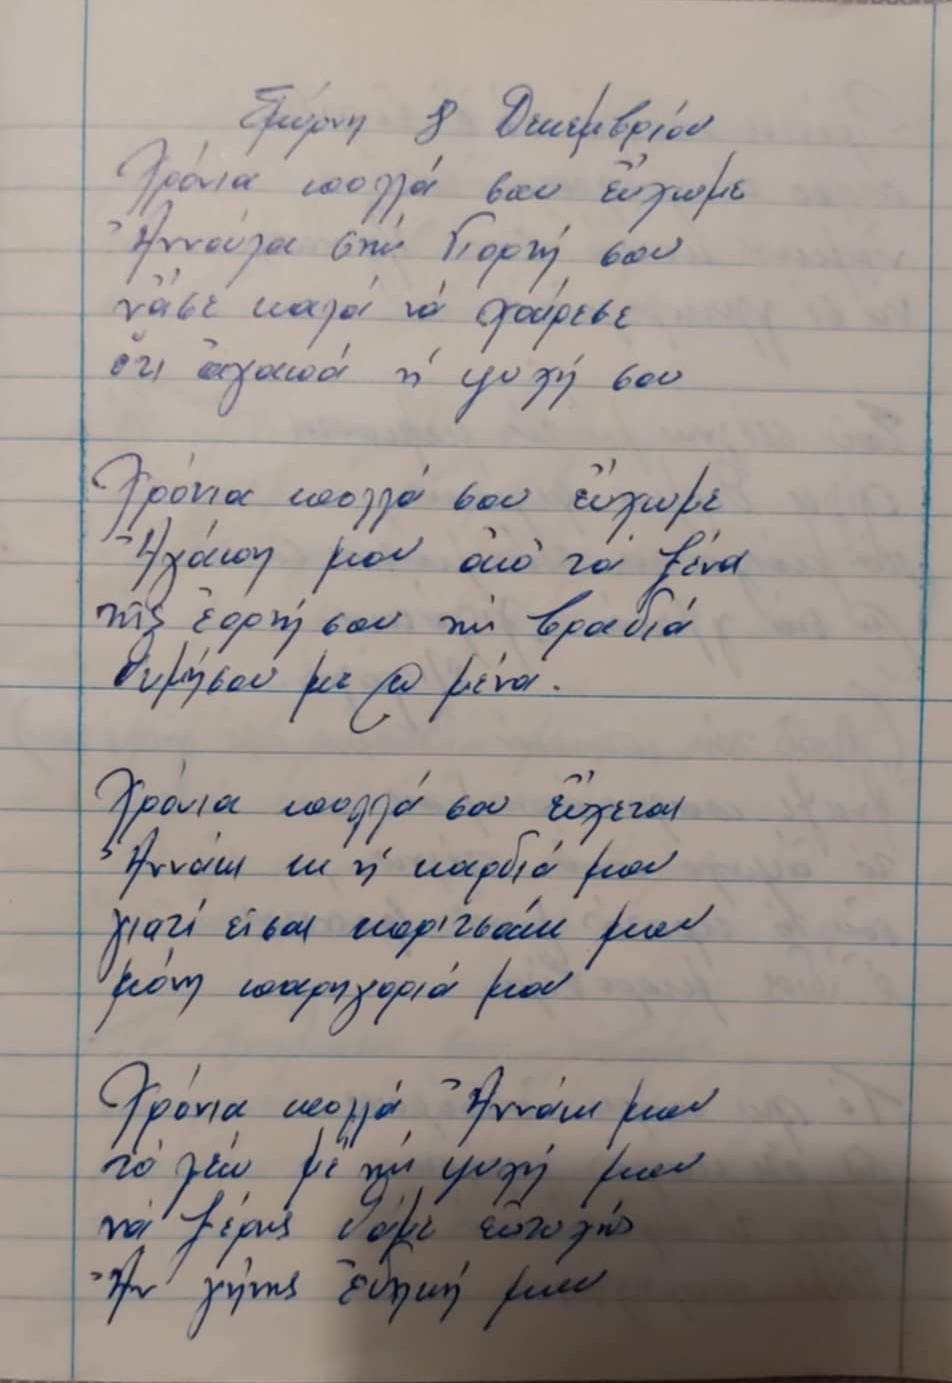 Σμύρνη 8 Δεκεμβρίου
Χρόνια πολλά σου εὔχωμε
Ἀννούλα στήν γιορτή σου
νἆσε καλά νά χαίρεσε
ὅτι ἀγαπά ἡ ψυχή σου
Χρόνια πολλά σου εὔχωμε
Ἀγάπη μου ἀπό τά ξένα
τῆς ἑορτή σου τήν βραδιά
θυμήσου με κι μένα.
Χρόνια πολλά σου εὔχεται
Ἀννάκι κι ἡ καρδιά μου
γιατί εἶσαι κοριτσάκι μου
μόνη παρηγοριά μου
Χρόνια πολλά Ἀννάκι μου
τό λέω μέ τήν ψυχή μου
νά ξέρης θἆμε εὐτυχής
Ἄν γίνης ἐδηκή μου